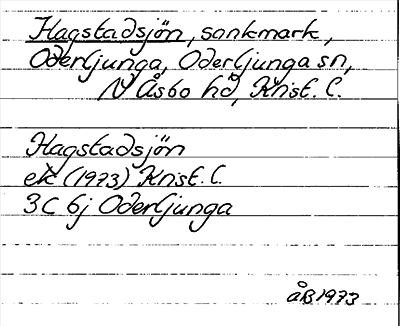 Hagstadsjön, sankmark,
Oderljunga, Oderljunga sn,
N Åsbo hd, Krist. l.
Hagstadsjön
ek (1973) Krist. l.
3C 6j Oderljunga
ÅB 1973